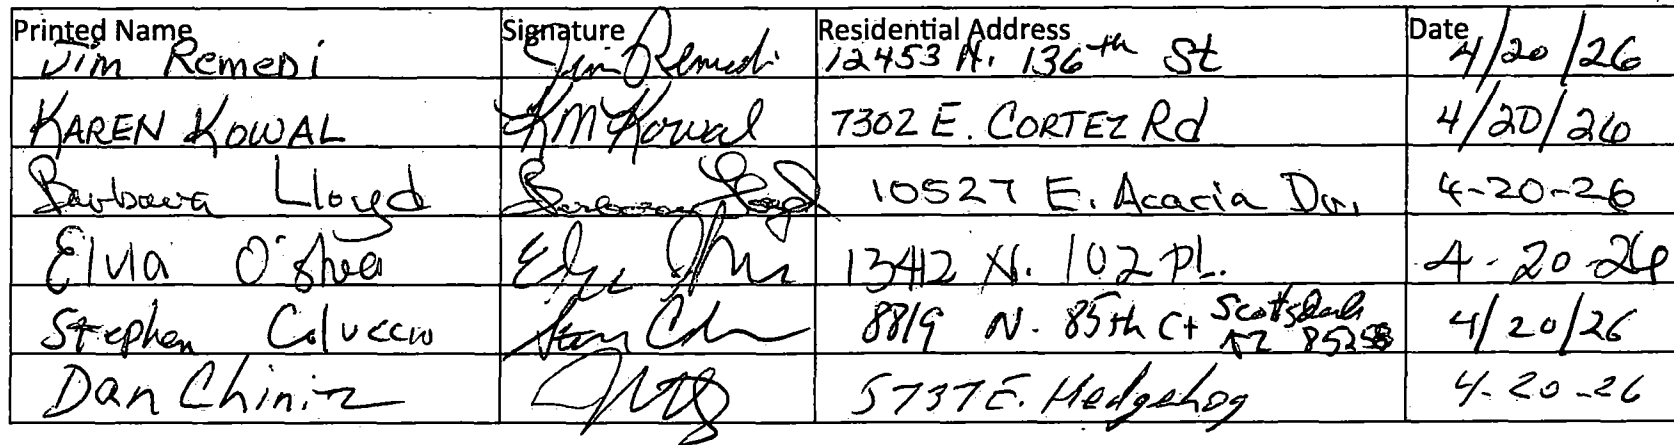 Printed Name Signature Residential Address Date
Jim Remedi Jim Remedi 12453 N. 136th St 4/20/26
KAREN KOWAL KM Kowal 7302 E. CORTEZ Rd 4/20/26
Barbara Lloyd Barbara Lloyd 10527 E. Acacia Dr. 4-20-26
Elvia O'Shea 13412 N. 102 PL. 4-20-26
Stephen Coluccio 8819 N. 85th Ct Scottsdale AZ 85258 4/20/26
Dan 5737 E. Hedgehog 4-20-26